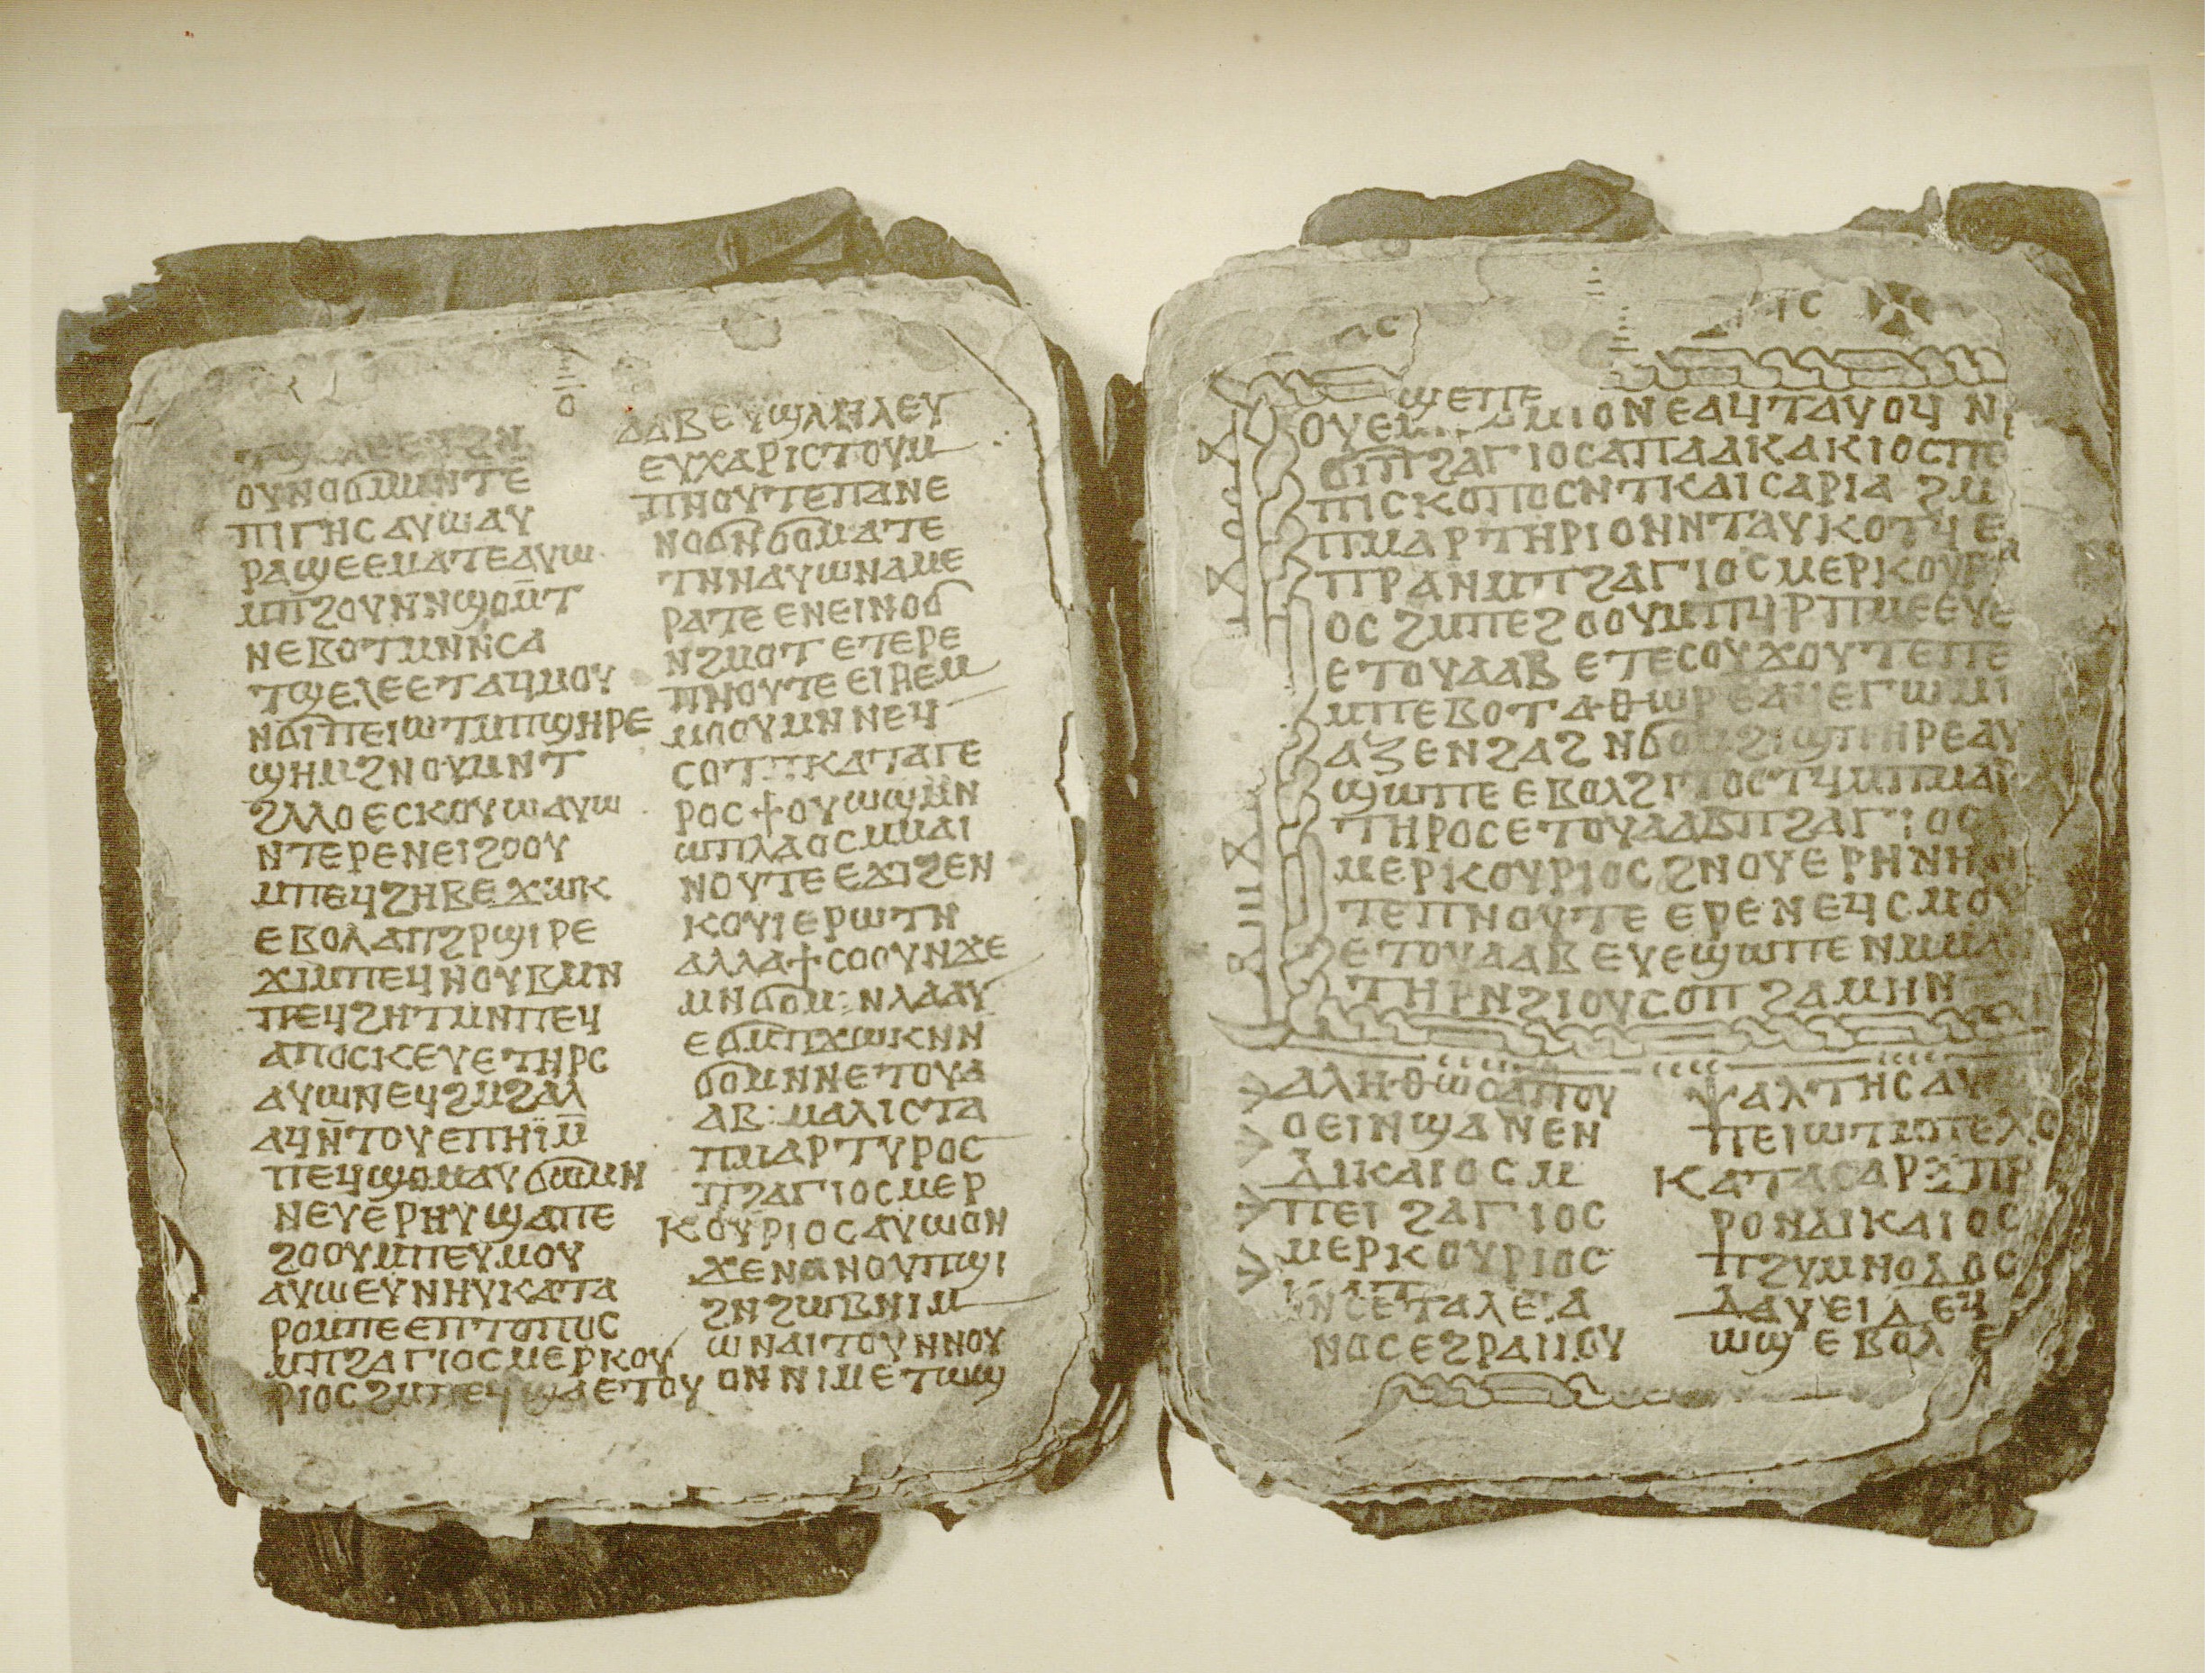 ⲟⲩⲛⲟϭⲙⲛⲧⲉ
ⲡⲓⲅⲏⲥⲁⲩⲱⲁⲩ
ⲣⲁϣⲉⲉⲙⲁⲧⲉⲁⲩⲱ
ⲙⲡϩⲟⲩⲛⲛϣⲟⲙ̄ⲧ
ⲛⲉⲃⲟⲧⲙⲛⲛ̄ⲥⲁ
ⲧϣⲉⲗⲉⲉⲧⲁϥⲙⲟⲩ
ⲛϭⲓⲡⲉⲓⲱⲧⲙⲡϣⲏⲣⲉ
ϣⲏⲙϩⲛⲟⲩⲙⲛⲧ
ϩⲗⲗⲟⲉⲥⲕⲟⲩⲱⲁⲩⲱ
ⲛⲧⲉⲣⲉⲛⲉⲓϩⲟⲟⲩ
ⲙⲡⲉϥϩⲏⲃⲉϫⲱⲕ
ⲉⲃⲟⲗⲁⲡϩⲣϣⲓⲣⲉ
ϫⲓⲙⲡⲉϥⲛⲟⲩⲃⲙⲛ
ⲡⲉϥϩⲏⲧⲙⲛⲡⲉϥ
ⲁⲡⲟⲥⲕⲉⲩⲉⲧⲏⲣⲥ
ⲁⲩⲱⲛⲉϥϩⲙϩⲁⲗ
ⲁϥⲛ̄ⲧⲟⲩⲉⲡⲏⲓ̈ⲙ̄
ⲡⲉϥϣⲟⲙⲁⲩϭⲱⲙⲛ
ⲛⲉⲩⲉⲣⲏⲩϣⲁⲡⲉ
ϩⲟⲟⲩⲙⲡⲉⲩⲙⲟⲩ
ⲁⲩⲱⲉⲩⲛⲏⲩⲕⲁⲧⲁ
ⲣⲟⲙⲡⲉⲉⲡⲧⲟⲡⲟⲥ
ⲙⲡϩⲁⲅⲓⲟⲥⲙⲉⲣⲕⲟⲩ
ⲣⲓⲟⲥϩⲙⲡⲉϥϣⲁⲉⲧⲟⲩ
ⲁⲁⲃⲉⲩϣⲗⲏⲗⲉⲩ
ⲉⲩⲭⲁⲣⲓⲥⲧⲟⲩⲙ
ⲡⲛⲟⲩⲧⲉⲡⲁⲛⲉ
ⲛⲟϭⲛϭⲟⲙⲁⲧⲉ
ⲧⲛⲛⲁⲩⲱⲛⲁⲙⲉ
ⲣⲁⲧⲉⲉⲛⲉⲓⲛⲟϭ
ⲛϩⲙⲟⲧⲉⲧⲉⲣⲉ
ⲡⲛⲟⲩⲧⲉⲉⲓⲣⲉⲙ
ⲙⲟⲟⲩⲙⲛⲛⲉϥ
ⲥⲟⲧⲡⲕⲁⲧⲁⲅⲉ
ⲣⲟⲥϯⲟⲩⲱϣⲙⲛ
ⲱⲡⲗⲁⲟⲥⲙⲙⲁⲓ
ⲛⲟⲩⲧⲉⲉϫⲓϩⲉⲛ
ⲕⲟⲩⲓⲉⲣⲱⲧⲛ
ⲁⲗⲗⲁϯⲥⲟⲟⲩⲛϫⲉ
ⲙⲛϭⲟⲙ:ⲛⲗⲁⲁⲩ
ⲉϭⲙⲡϫⲱⲕⲛⲛ
ϭⲟⲙⲛⲛⲉⲧⲟⲩⲁ
ⲁⲃ:ⲙⲁⲗⲓⲥⲧⲁ
ⲡⲙⲁⲣⲧⲩⲣⲟⲥ
ⲡϩⲁⲅⲓⲟⲥⲙⲉⲣ
ⲕⲟⲩⲣⲓⲟⲥⲁⲩⲱⲟⲛ
ϫⲉⲛⲁⲛⲟⲩⲡϣⲓ
ϩⲛϩⲱⲃⲛⲓⲙ
ⲱⲛⲁⲓⲧⲟⲩⲛⲛⲟⲩ
ⲟⲛⲛⲓⲙⲉⲧⲱϣ
ⲓⲥ
ϣⲉⲡⲉ
ⲙⲓⲟⲛⲉⲁϥⲧⲁⲩⲟϥ ⲛ
ϭⲓⲡϩⲁⲅⲓⲟⲥⲁⲡⲁⲁⲕⲁⲕⲓⲟⲥⲡⲉ
ⲡⲓⲥⲕⲟⲡⲟⲥⲛⲧⲕⲁⲓⲥⲁⲣⲓⲁ ϩⲙ
ⲡⲙⲁⲣⲧⲏⲣⲓⲟⲛⲛⲧⲁⲩⲕⲟⲧϥ ⲉ
ⲡⲣⲁⲛⲙⲡϩⲁⲅⲓⲟⲥⲙⲉⲣⲕⲟⲩⲣ
ⲟⲥ ϩⲙⲡⲉϩⲟⲟⲩⲙⲡϥⲣⲡⲙⲉⲉⲩⲉ
ⲉⲧⲟⲩⲁⲁⲃ ⲉⲧⲉⲥⲟⲩϫⲟⲩⲧⲉⲡⲉ
ⲙⲡⲉⲃⲟⲧⲁⲑⲱⲣ
ⲁⲍⲉⲛϩⲁϩ ⲛϭⲟⲙϩⲓϣⲡⲏⲣⲉⲁⲩ
ϣⲱⲡⲉ ⲉⲃⲟⲗϩⲓⲧⲟⲟⲧϥⲙⲡⲙⲁⲣ
ⲧⲏⲣⲟⲥⲉⲧⲟⲩⲁⲁⲃⲡϩⲁⲅⲓⲟⲥ
ⲙⲉⲣⲕⲟⲩⲣⲓⲟⲥ ϩⲛⲟⲩⲉⲣⲏⲛⲏ
ⲧⲉⲡⲛⲟⲩⲧⲉ ⲉⲣⲉⲛⲉϥⲥⲙⲟⲩ
ⲉⲧⲟⲩⲁⲁⲃ ⲉⲩⲉϣⲱⲡⲉⲛⲙⲙⲁ
ⲧⲏⲣⲛϩⲓⲟⲩⲥⲟⲡ ϩⲁⲙⲏⲛ
ⲁⲗⲏⲑⲱⲥⲁⲡⲟⲩ
ⲟⲉⲓⲛϣⲁⲛⲉⲛ
ⲇⲓⲕⲁⲓⲟⲥ ⲙ
ⲡⲉⲓ ϩⲁⲅⲓⲟⲥ
ⲙⲉⲣⲕⲟⲩⲣⲓⲟⲥ
ⲯⲁⲗⲧⲏⲥ ⲁⲩ
ⲡⲉⲓⲱⲧⲙⲡⲉⲭⲥ
ⲕⲁⲧⲁⲥⲁⲣⲝⲡⲣ
ⲣⲟⲛⲇⲓⲕⲁⲓⲟⲥ
ⲡϩⲩⲙⲛⲟⲇⲟⲥ
ⲇⲁⲩⲉⲓⲇ ⲉϥ
ⲱϣ ⲉⲃⲟⲗ